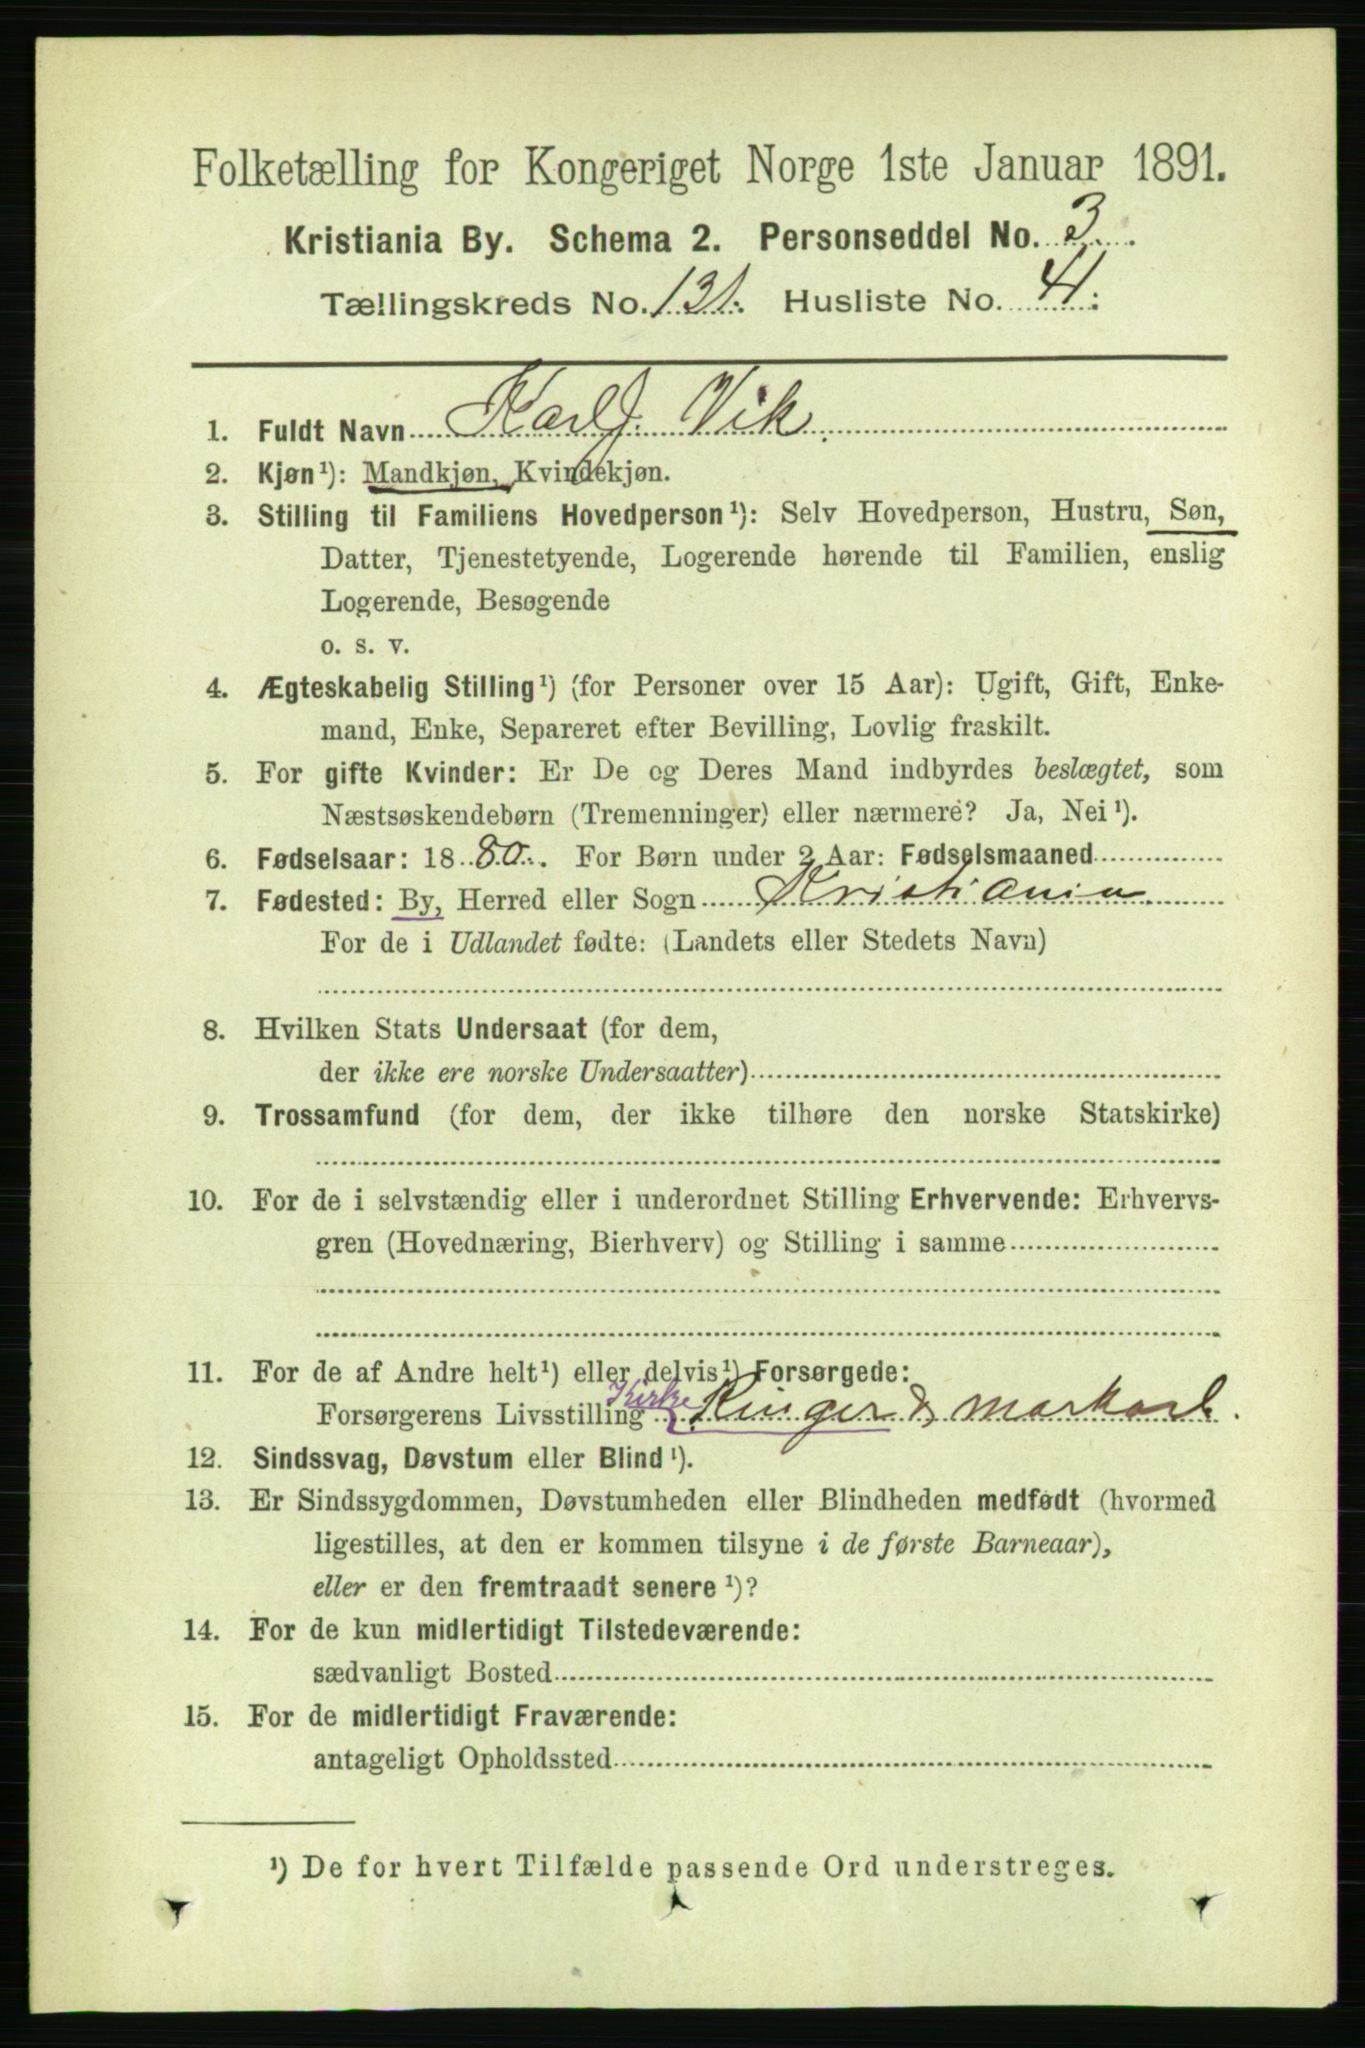 Folketælling for Kongeriget Norge 1ste Januar 1891.
Kristiania By. Schema 2. Personseddel No. 3.
Tællingskreds No. 131. Husliste No. 41.
1. Fuldt Navn Karl J. Vik.
2. Kjøn¹): Mandkjøn, Kvindekjøn.
3. Stilling til Familiens Hovedperson¹): Selv Hovedperson, Hustru, Søn,
Datter, Tjenestetyende, Logerende hørende til Familien, enslig
Logerende, Besøgende
o. s. v.
4. Ægteskabelig Stilling¹) (for Personer over 15 Aar): Ugift, Gift, Enke-
mand, Enke, Separeret efter Bevilling, Lovlig fraskilt.
5. For gifte Kvinder: Er De og Deres Mand indbyrdes beslægtet, som
Næstsøskendebørn (Tremenninger) eller nærmere? Ja, Nei¹).
6. Fødselsaar: 1880. For Børn under 2 Aar: Fødselsmaaned
7. Fødested: By, Herred eller Sogn Kristiania
For de i Udlandet fødte: (Landets eller Stedets Navn)
8. Hvilken Stats Undersaat (for dem,
der ikke ere norske Undersaatter)
9. Trossamfund (for dem, der ikke tilhøre den norske Statskirke)
10. For de i selvstændig eller i underordnet Stilling Erhvervende: Erhvervs-
gren (Hovednæring, Bierhverv) og Stilling i samme
11. For de af Andre helt¹) eller delvis¹) Forsørgede:
Forsørgerens Livsstilling Kirke Ringer & markarb.
12. Sindssvag, Døvstum eller Blind¹).
13. Er Sindssygdommen, Døvstumheden eller Blindheden medfødt (hvormed
ligestilles, at den er kommen tilsyne i de første Barneaar),
eller er den fremtraadt senere¹)?
14. For de kun midlertidigt Tilstedeværende:
sædvanligt Bosted
15. For de midlertidigt Fraværende:
antageligt Opholdssted
¹) De for hvert Tilfælde passende Ord understreges.